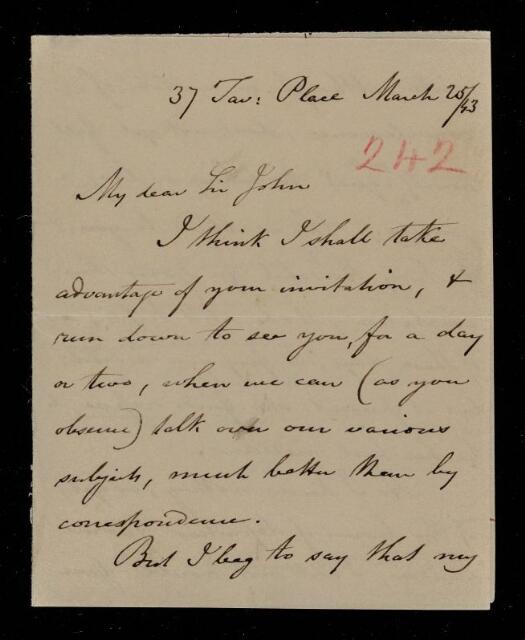 37 Tav: Place March 25/43
242
My dear Sir John
I think I shall take
advantage of your invitation, &
run down to see you, for a day
or two, when we can (as you
observe) talk over our various
subjects, much better than by
correspondence.
But I beg to say that my